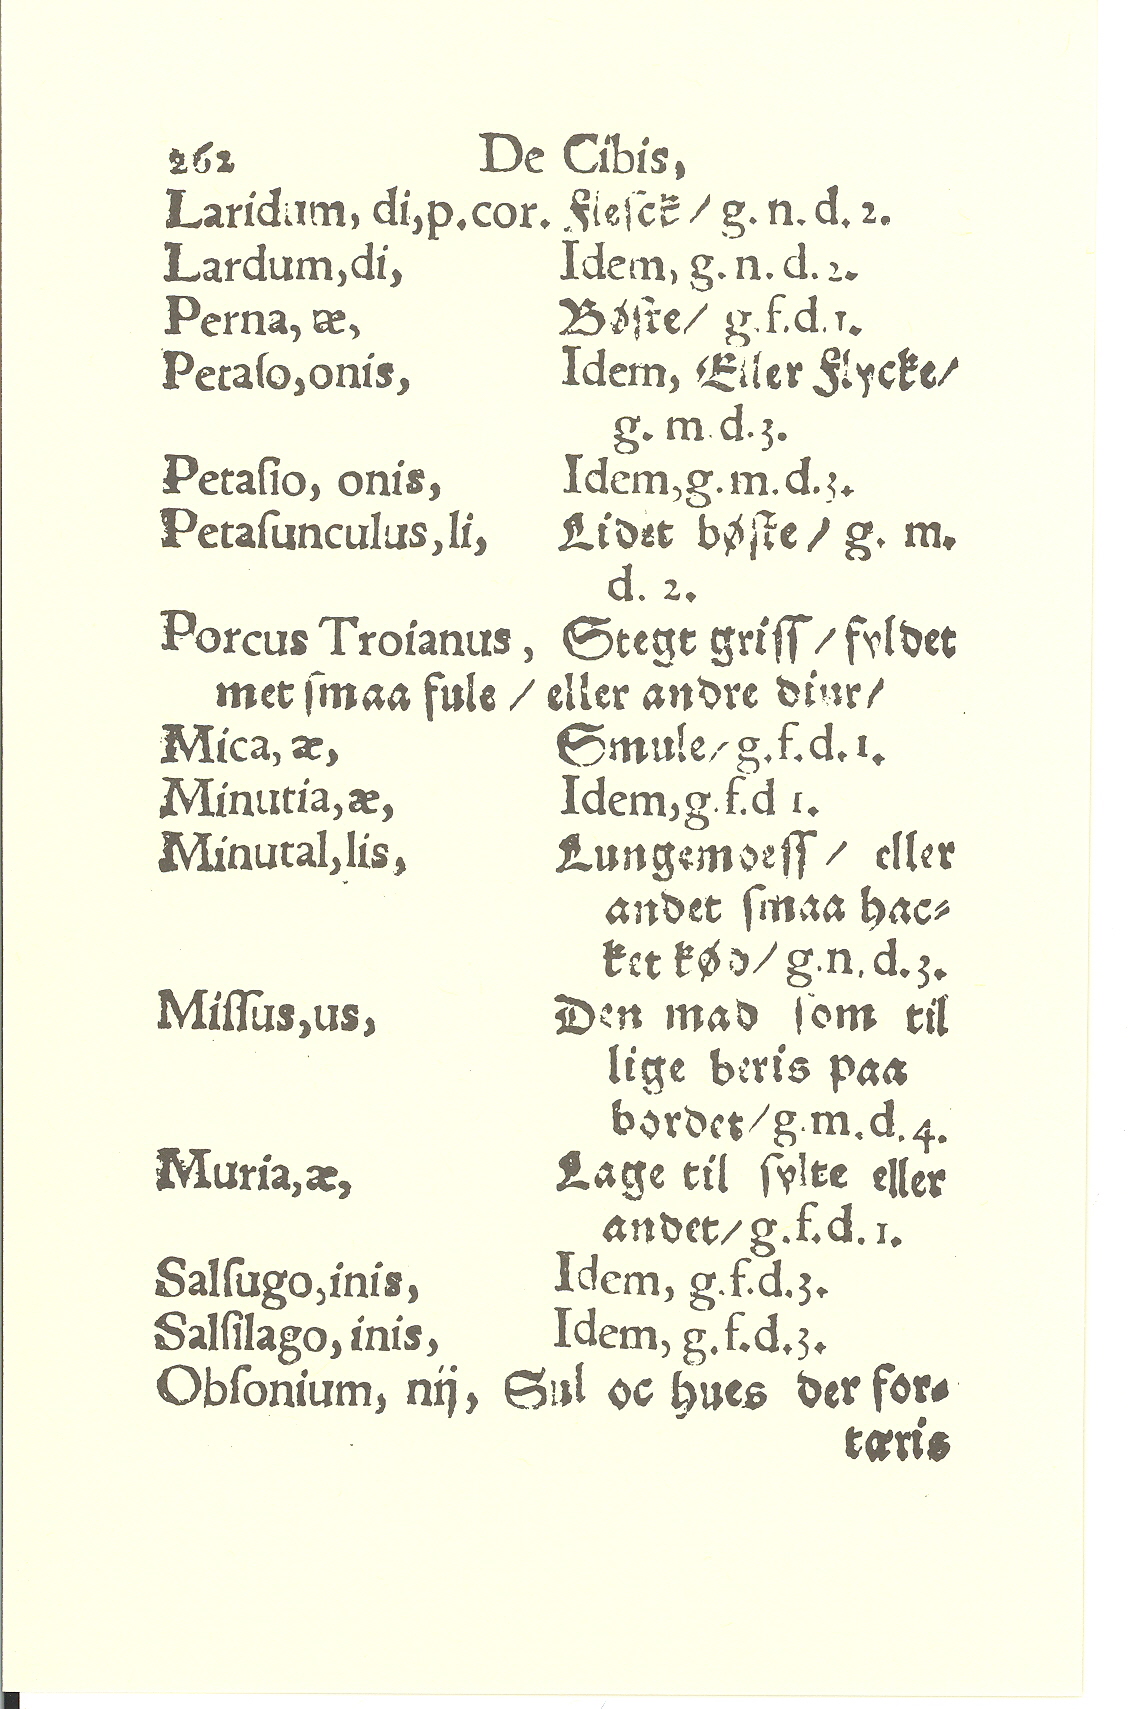 262 De Cibis,
Laridum, di,p.cor. Flesck / g. n. d. 2.
Lardum,di, Idem, g. n. d. 2.
Perna, æ, Bøste/ g.f.d.1.
Petaſo,onis, Idem, Eller Flycke/
g. m. d.3.
Petaſio, onis, Idem,g.m.d.3.
Petaſunculus,li, Lidet bøſte / g. m.
d. 2.
Porcus Troianus, Stegt griſſ / fyldet
met ſmaa fule / eller andre diur/
Mica, æ, Smule/ g.f.d.1.
Minutia,æ, Idem,g.f.d 1.
Minutal,lis, Lungemoeſſ / eller
andet ſmaa hac⸗
ket kød/ g.n.d.3.
Miſſus,us, Den mad ſom til
lige beris paa
bordet/g.m.d.4.
Muria,æ, Lage til ſylte eller
andet/g.f.d.1.
Salſugo,inis, Idem, g.f.d.3.
Salſilago, inis, Idem, g.f.d.3.
Obſonium, nij, Sul oc hues der for⸗
tæris